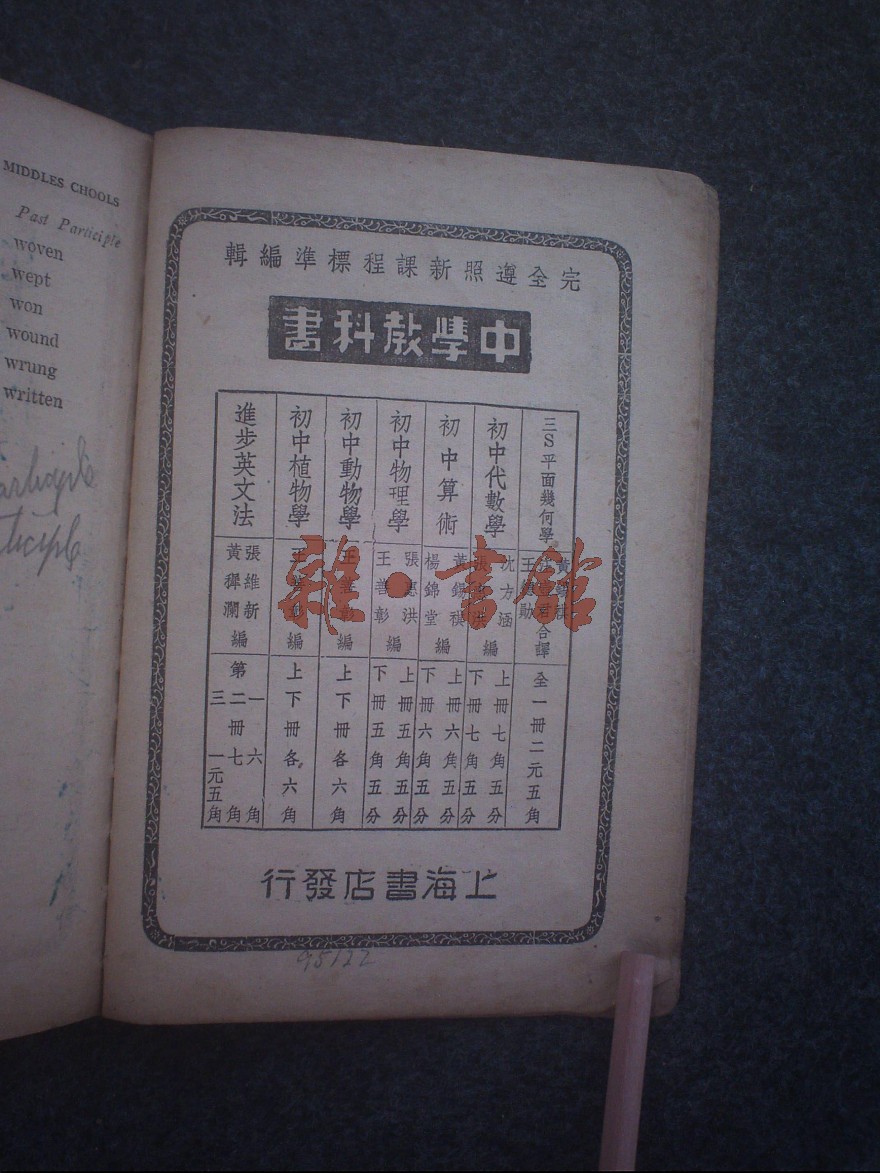 MIDDLES CHOOLS
Past Participle
woven
wept
won
wound
wrung
written
完全遵照新課程標準編輯
中學教科書
三S平面幾何學
王 勛 君合譯
全一冊二元五角
初中代數學
沈方涵
編
上冊七角五分
下冊七角五分
初中算術
黃錫祺
楊錦堂
編
上冊六角五分
下冊六角五分
初中物理學
張惠洪
王善彰
編
上冊五角五分
下冊五角五分
初中動物學
王善彰編
上下冊各六角
初中植物學
王善彰編
上下冊各六角
進步英文法
張維新
黃穉瀾
編
第一冊六角
二 七角
三 一元五角
上海書店發行
95122
雜·書館